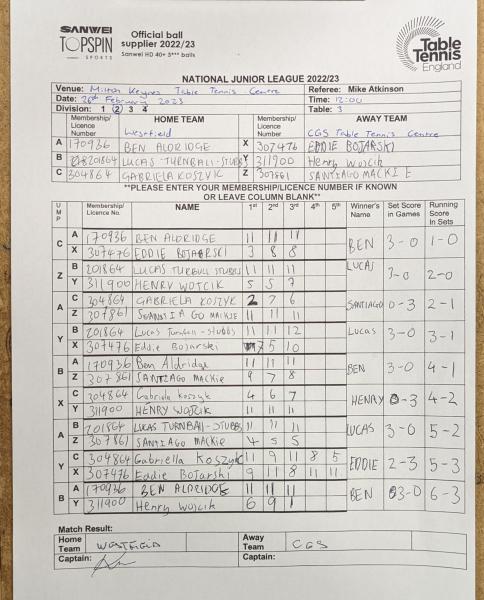 SANWEI
TOPSPIN
SPORTS
Official ball
supplier 2022/23
Sanwei HD 40+ 3*** balls
Table
Tennis
England
NATIONAL JUNIOR LEAGUE 2022/23
Venue: Milton Keynes Table Tennis Centre Referee: Mike Atkinson
Date: 26th February 2023 Time: 12:00
Division: 1 2 3 4 Table: 3
Membership/ Licence Number HOME TEAM Westfield Membership/ Licence Number AWAY TEAM CGS Table Tennis Centre
A 170936 BEN ALDRIDGE X 307476 EDDIE BOJARSKI
B 201864 LUCAS TURNBALL-STUBBS Y 311900 Henry Wojcik
C 304864 GABRIELA KOSZYK Z 307861 SANTIAGO MACKIE
**PLEASE ENTER YOUR MEMBERSHIP/LICENCE NUMBER IF KNOWN
OR LEAVE COLUMN BLANK**
UMP Membership/ Licence No. NAME 1st 2nd 3rd 4th 5th Winner's Name Set Score in Games Running Score In Sets
C A 170936 BEN ALDRIDGE 11 11 11 BEN 3-0 1-0
X 307476 EDDIE BOJARSKI 3 8 8
Z B 201864 LUCAS TURBULL STUBBS 11 11 11 LUCAS 3-0 2-0
Y 311900 HENRY WOTCIK 5 5 7
A C 304864 GABRIELA KOSZYK 2 7 6 SANTIAGO 0-3 2-1
Z 307861 SANTIAGO MACKIE 11 11 11
Y B 201864 Lucas Turnball-Stubbs 11 11 12 Lucas 3-0 3-1
X 307476 Eddie Bojarski 7 5 10
B A 170936 Ben Aldridge 11 11 11 BEN 3-0 4-1
Z 307861 SANTIAGO MACKie 9 7 8
X C 304864 Gabriela Koszyk 4 6 7 HENRY 0-3 4-2
Y 311900 HENRY WOJCIK 11 11 11
A B 201864 LUCAS TURNBALL-STUBBS 11 11 11 LUCAS 3-0 5-2
Z 307861 SANTIAGO MACKie 4 5 5
Y C 304864 Gabriella Koszyk 11 9 11 8 5 EDDIE 2-3 5-3
X 307476 Eddie Bojarski 9 11 8 11 11
B A 170936 BEN ALDRIDGE 11 11 11 BEN 3-0 6-3
Y 311900 Henry Wojcik 6 9 1
Match Result:
Home Team Away Team CGS
Captain: Captain: